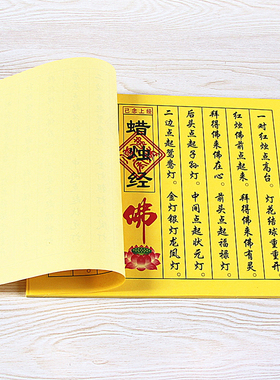 一对红烛点高台。灯花结球重重开
红烛佛前点起来。拜得佛来佛有灵
拜得佛来佛在心。前头点起福禄灯
后头点起子孙灯。中间点起状元灯
二边点起鸳鸯灯。金灯银灯龙凤灯。
已念上经
蜡烛经
佛